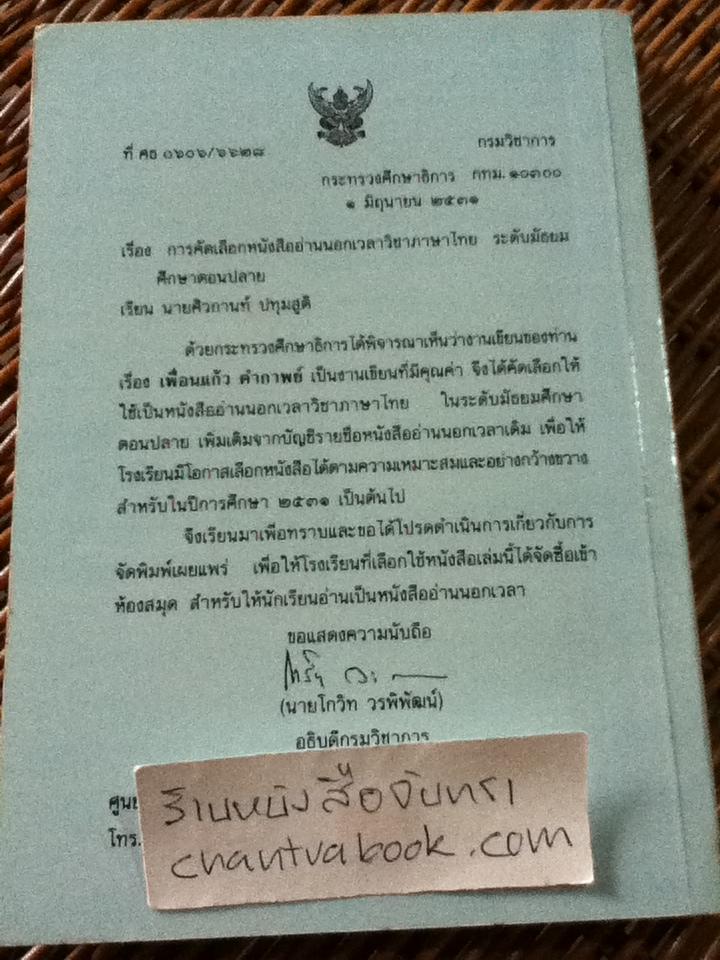 ที่ ศธ ๐๖๐๖/๖๖๒๘
กรมวิชาการ
กระทรวงศึกษาธิการ กทม. ๑๐๓๐๐
๑ มิถุนายน ๒๕๓๑
เรื่อง การคัดเลือกหนังสืออ่านนอกเวลาวิชาภาษาไทย ระดับมัธยม
ศึกษาตอนปลาย
เรียน นายศิวกานท์ ปทุมสูติ
ด้วยกระทรวงศึกษาธิการได้พิจารณาเห็นว่างานเขียนของท่าน
เรื่อง เพื่อนแก้ว คำกาพย์ เป็นงานเขียนที่มีคุณค่า จึงได้คัดเลือกให้
ใช้เป็นหนังสืออ่านนอกเวลาวิชาภาษาไทย ในระดับมัธยมศึกษา
ตอนปลาย เพิ่มเติมจากบัญชีรายชื่อหนังสืออ่านนอกเวลาเดิม เพื่อให้
โรงเรียนมีโอกาสเลือกหนังสือได้ตามความเหมาะสมและอย่างกว้างขวาง
สำหรับในปีการศึกษา ๒๕๓๑ เป็นต้นไป
จึงเรียนมาเพื่อทราบและขอได้โปรดดำเนินการเกี่ยวกับการ
จัดพิมพ์เผยแพร่ เพื่อให้โรงเรียนที่เลือกใช้หนังสือเล่มนี้ได้จัดซื้อเข้า
ห้องสมุด สำหรับให้นักเรียนอ่านเป็นหนังสืออ่านนอกเวลา
ขอแสดงความนับถือ
(นายโกวิท วรพิพัฒน์)
อธิบดีกรมวิชาการ
โทร.
ร้านหนังสือจันทรา
chantrabook.com